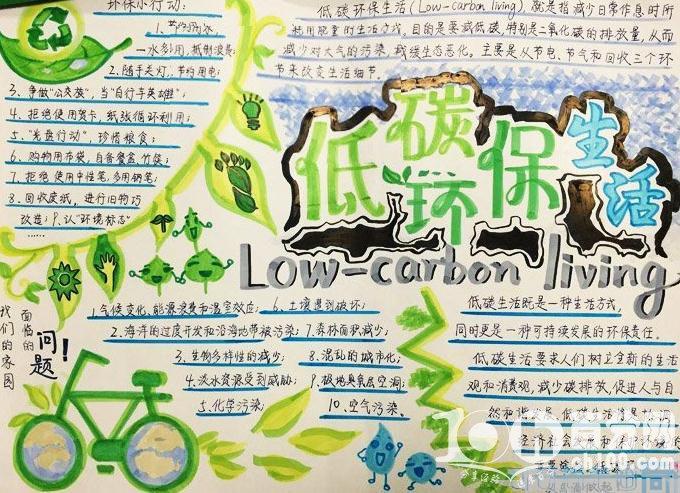 环保小行动:
1、节约用水,
一水多用,抵制浪费;
2、随手关灯,节约用电;
3、争做“公交族”,当“自行车英雄”;
4、拒绝使用贺卡,纸张循环利用;
5、“光盘行动”珍惜粮食;
6、购物用布袋,自备餐盒,竹筷;
7、拒绝使用中性笔,多用钢笔;
8、回收废纸,进行旧物巧
改造;9、认“环境标志”
……
低碳环保生活(Low-carbon living),就是指减少日常作息时所
耗用能量的生活方式,目的是要减低碳,特别是二氧化碳的排放量,从而
减少对大气的污染,减缓生态恶化。主要是从节电、节气和回收三个环
节来改变生活细节。
低碳环保生活
Low-carbon living
我们的家园
面临的
问题!
1.气候变化、能源浪费和温室效应;
2.海洋的过度开发和沿海地带被污染;
3.生物多样性的减少;
4.淡水资源受到威胁;
5.化学污染;
6.土壤遭到破坏;
7.森林面积减少;
8.混乱的城市化;
9.极地臭氧层空洞;
10.空气污染。
低碳生活既是一种生活方式,
同时更是一种可持续发展的环保责任。
低碳生活要求人们树立全新的生活
观和消费观,减少碳排放,促进人与自
然和谐
低碳生活
经济社会
ch100.com